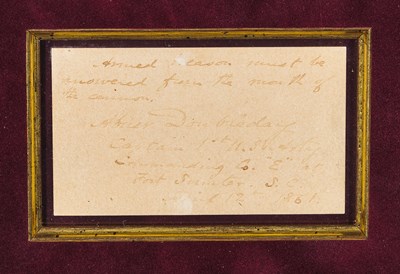 Armed treason must be
answered from the mouth of
the cannon.
Abner Doubleday
Captain 1st U.S. Arty
Commanding Co. "E" at
Fort Sumter. S. C.
April 12th 1861.